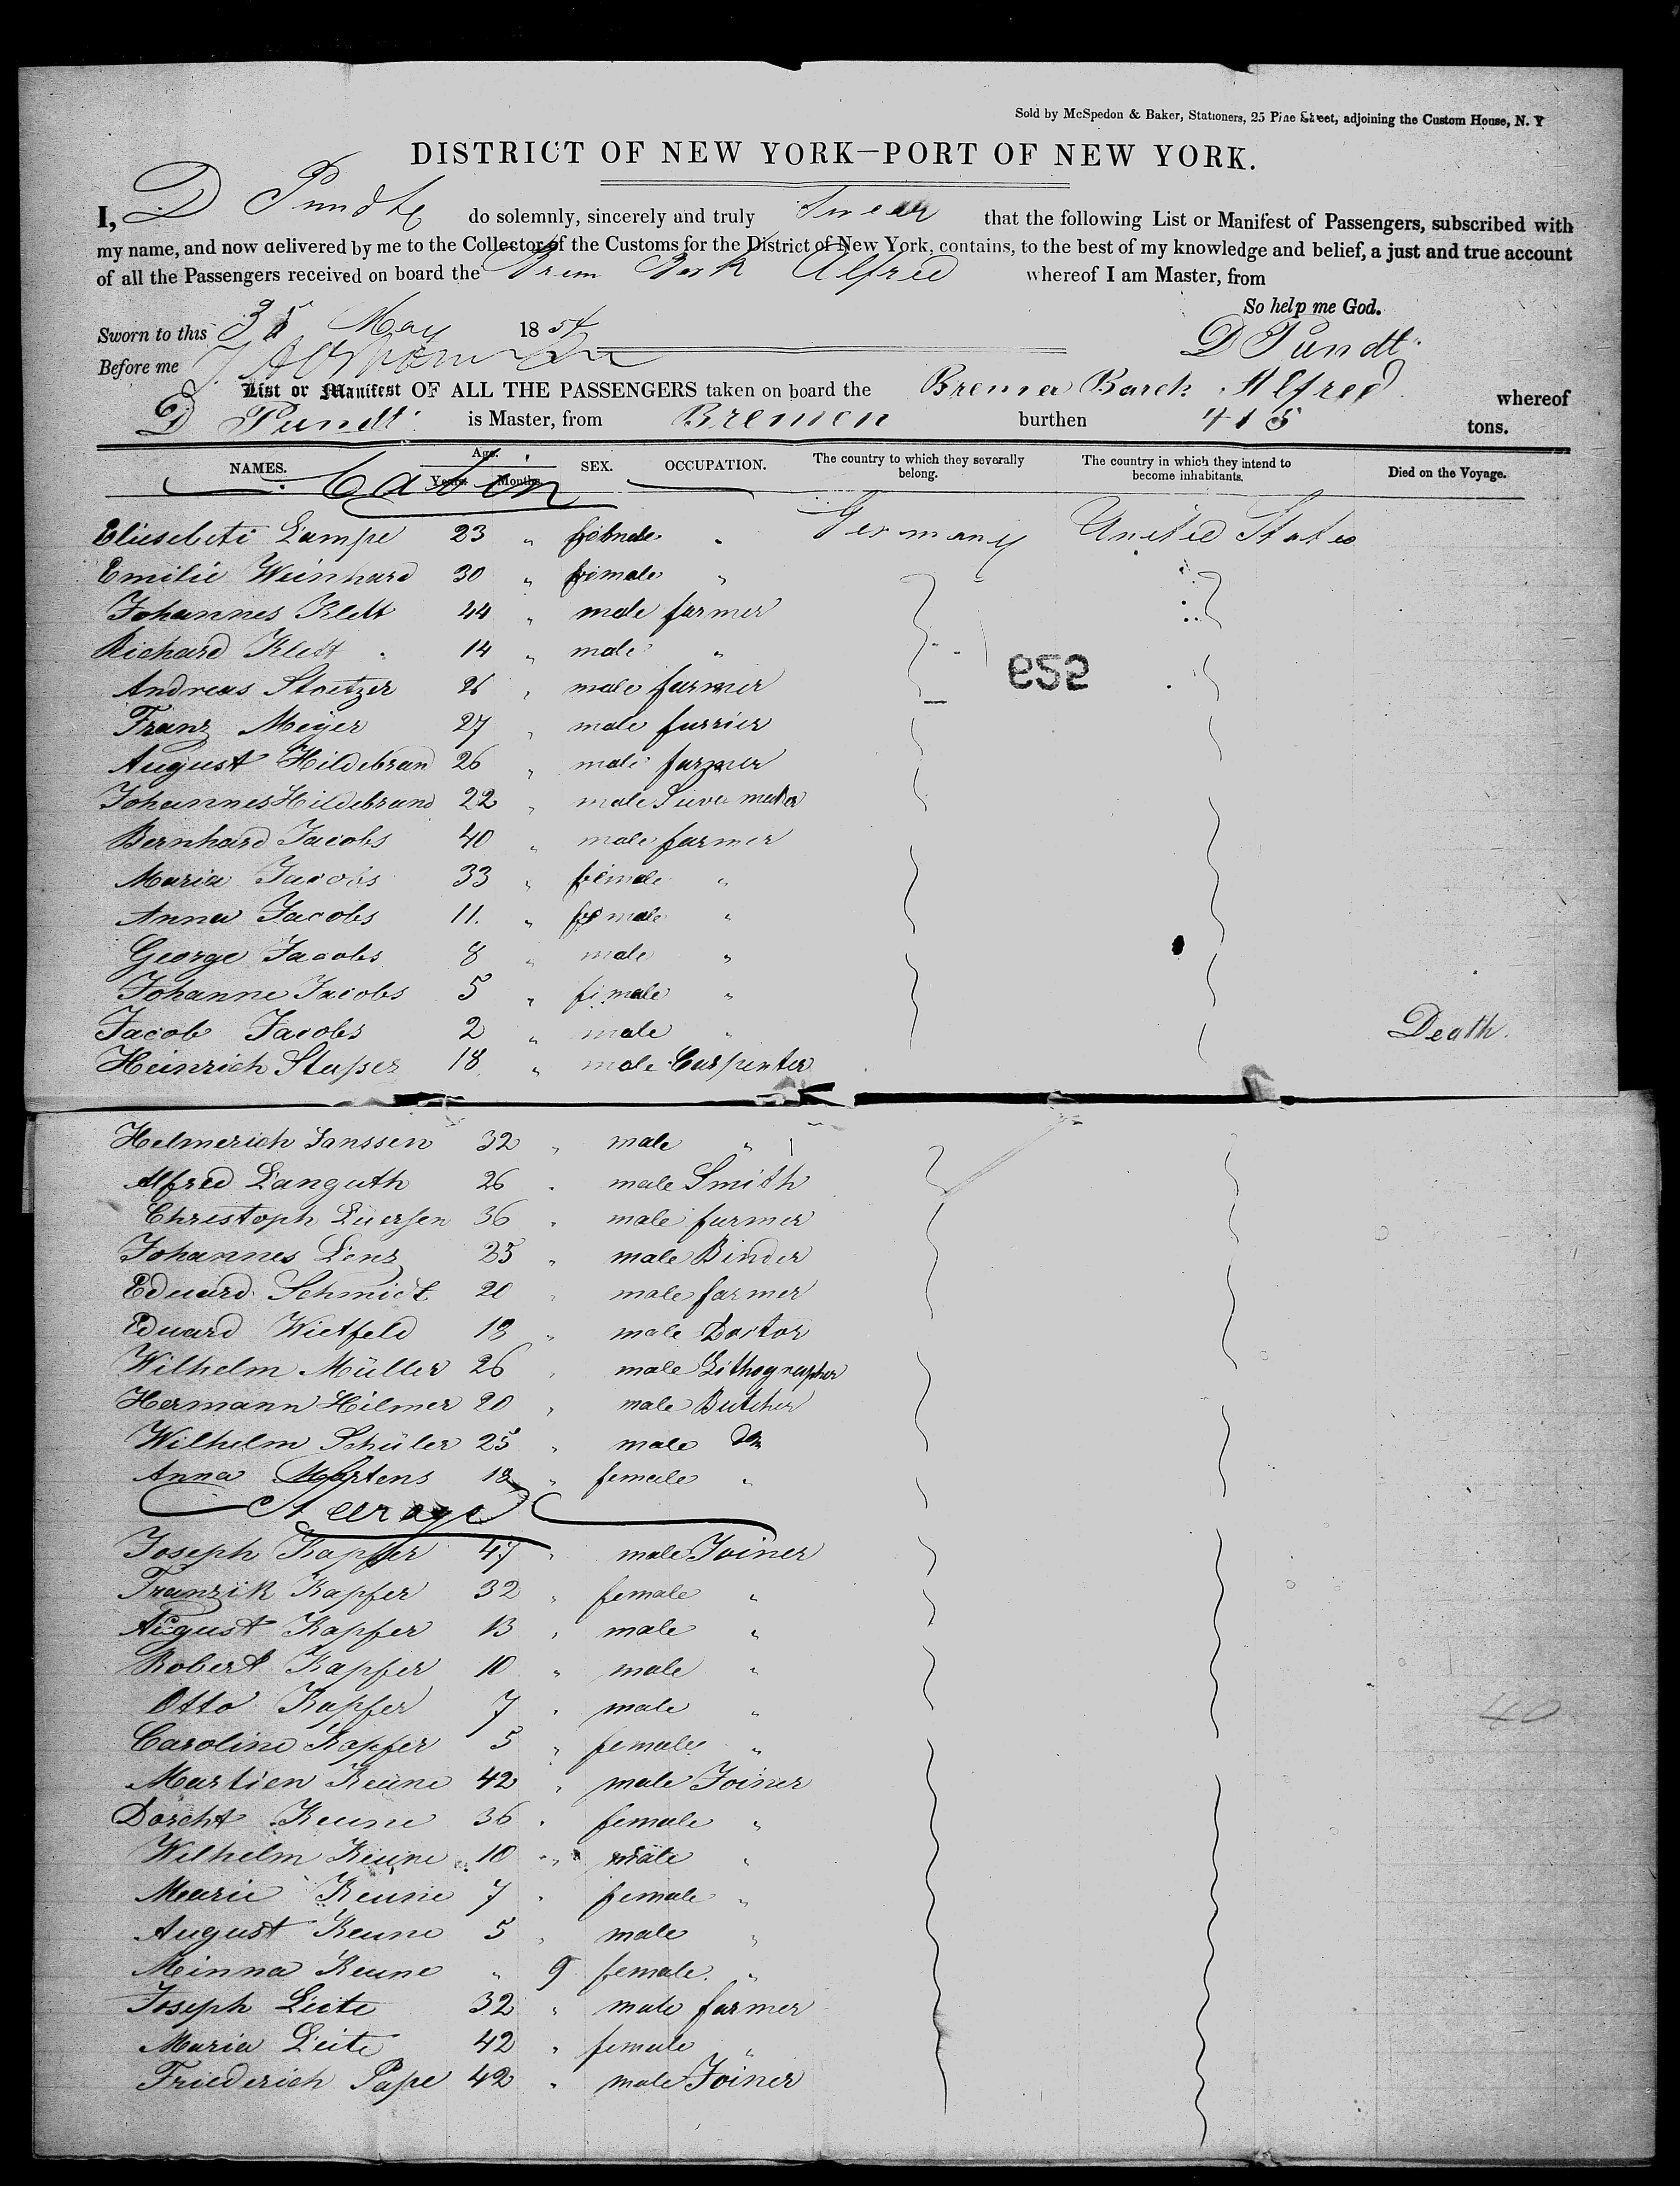 Sold by McSpedon & Baker, Stationers, 25 Pine Street, adjoining the Custom House, N. Y
DISTRICT OF NEW YORK—PORT OF NEW YORK.
I, D Pundt do solemnly, sincerely and truly Swear that the following List or Manifest of Passengers, subscribed with
my name, and now delivered by me to the Collector of the Customs for the District of New York, contains, to the best of my knowledge and belief, a just and true account
of all the Passengers received on board the Brem Bark Alfred whereof I am Master, from
So help me God.
Sworn to this 31 May 1854 D Pundt
Before me
List or Manifest OF ALL THE PASSENGERS taken on board the Bremer Barck Alfred whereof
D Pundt is Master, from Bremen burthen 415 tons.
NAMES. Age. Years. Months. SEX. OCCUPATION. The country to which they severally belong. The country in which they intend to become inhabitants. Died on the Voyage.
Cabin
Eliesebete Lampe 23 " female " Germany United States
Emilie Weinhard 30 " female "
Johannes Klett 44 " male farmer
Richard Klett 14 " male "
Andreas Stoetzer 26 " male farmer
Franz Meyer 27 " male furrier
August Hildebran 26 " male farmer
Johannes Hildebrand 22 " male
Bernhard Jacobs 40 " male farmer
Maria Jacobs 33 " female "
Anna Jacobs 11. " female "
George Jacobs 8 " male "
Johanne Jacobs 5 " female "
Jacob Jacobs 2 " male " Death.
Heinrich Stapser 18 " male Carpenter
952
Helmerich Janssen 32 " male "
Alfred Languth 26 " male Smith
Christoph Luersen 36 " male farmer
Johannes Lenz 25 " male Binder
Eduard Schmidt 20 " male farmer
Eduard Wietfeld 18 " male Doctor
Wilhelm Müller 26 " male Lithographer
Hermann Hilmer 20 " male Butcher
Wilhelm Schüler 25 " male do
Anna Martens 18 " female "
Steerage
Joseph Kapffer 47 " male Joiner
Franzik Kapfer 32 " female "
August Kapfer 13 " male "
Robert Kapfer 10 " male "
Otto Kapfer 7 " male "
40
Caroline Kapfer 5 " female "
Martien Keune 42 " male Joiner
Dorcht Keune 36 " female "
Wilhelm Keune 10 " male "
Marie Keune 7 " female "
August Keune 5 " male "
Minna Keune " 9 female "
Joseph Leite 32 " male farmer
Maria Leite 42 " female "
Friederich Pape 42 " male Joiner